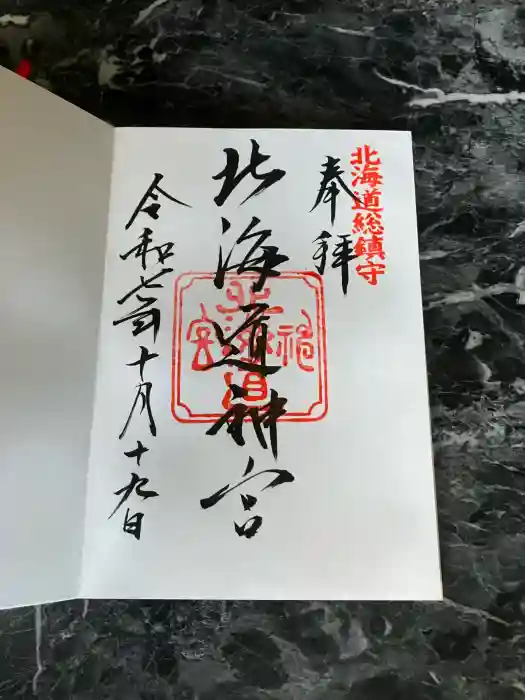 北海道総鎮守
奉拝
北海道神宮
北海道神宮
令和七年十月十九日